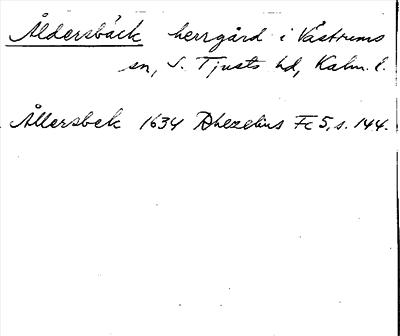 Åldersbäck herrgård i Västrums
sn, S. Tjusts hd, Kalm. l.
Ållersbek 1634 Rhezelius Fc 5, s. 144.